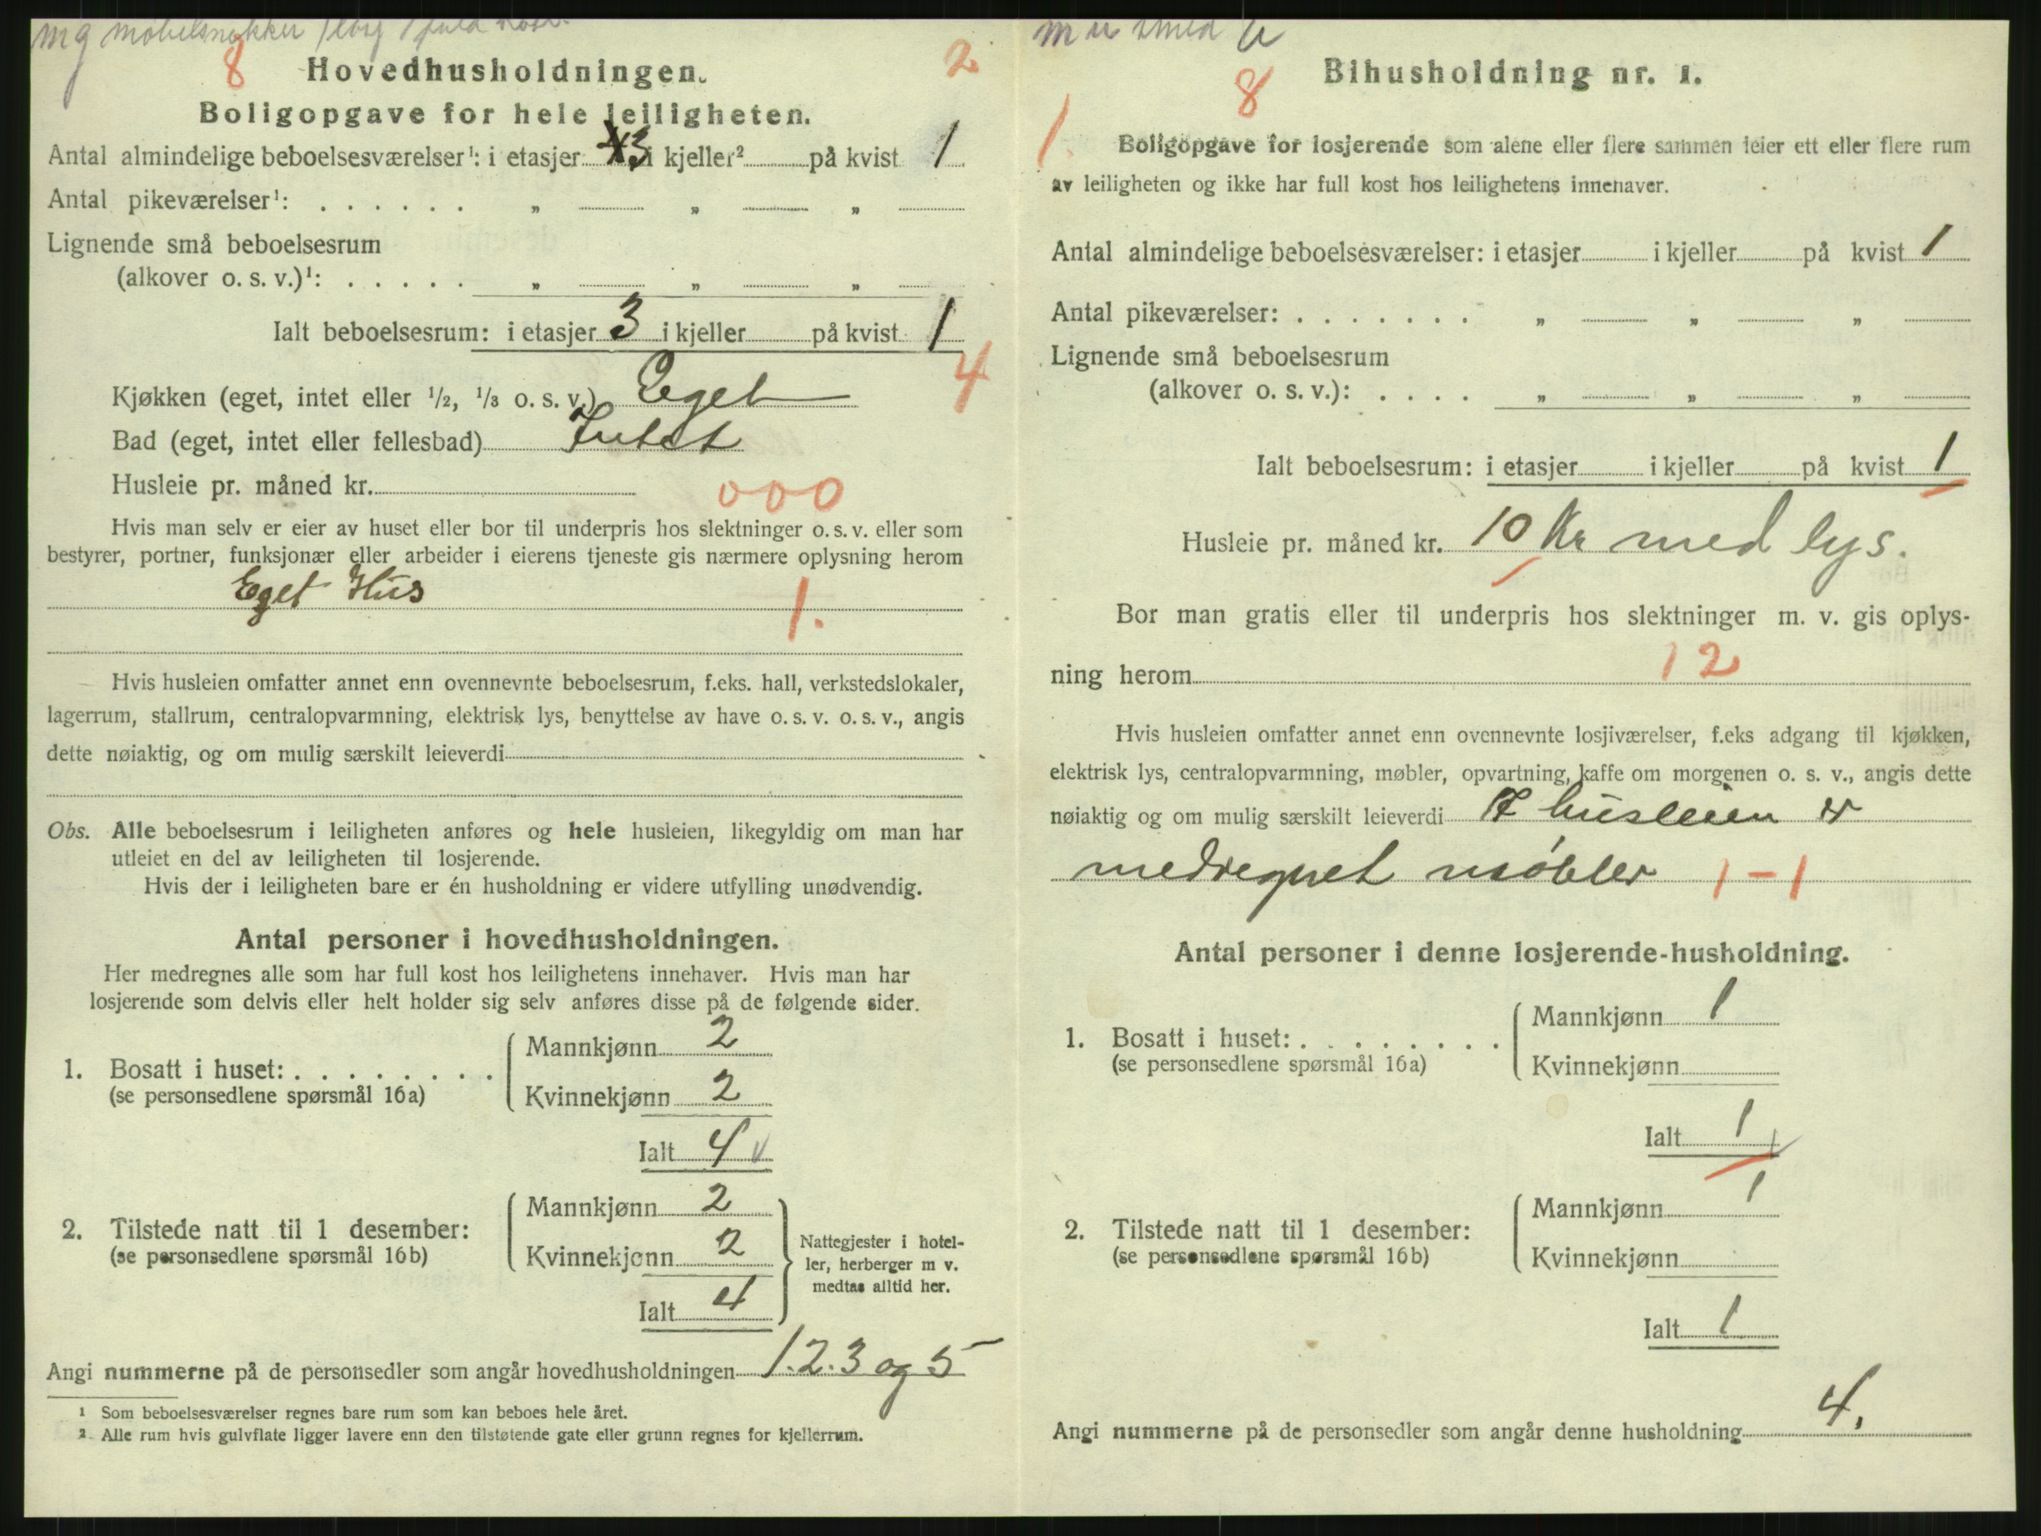 mg møbelsnekker
8
2
Hovedhusholdningen.
Boligopgave for hele leiligheten.
Antal almindelige beboelsesværelser¹: i etasjer 3 i kjeller² på kvist 1
Antal pikeværelser¹: . . . . . . „ „ „
Lignende små beboelsesrum
(alkover o. s. v.)¹: . . . . . „ „ „
Ialt beboelsesrum: i etasjer 3 i kjeller på kvist 1
4
Kjøkken (eget, intet eller ½, ⅓ o. s. v.) Eget
Bad (eget, intet eller fellesbad) Intet
Husleie pr. måned kr. 000
Hvis man selv er eier av huset eller bor til underpris hos slektninger o. s. v. eller som
bestyrer, portner, funksjonær eller arbeider i eierens tjeneste gis nærmere oplysning herom
Eget Hus 1.
Hvis husleien omfatter annet enn ovennevnte beboelsesrum, f.eks. hall, verkstedslokaler,
lagerrum, stallrum, centralopvarmning, elektrisk lys, benyttelse av have o. s. v. o. s. v., angis
dette nøiaktig, og om mulig særskilt leieverdi
Obs. Alle beboelsesrum i leiligheten anføres og hele husleien, likegyldig om man har
utleiet en del av leiligheten til losjerende.
Hvis der i leiligheten bare er én husholdning er videre utfylling unødvendig.
Antal personer i hovedhusholdningen.
Her medregnes alle som har full kost hos leilighetens innehaver. Hvis man har
losjerende som delvis eller helt holder sig selv anføres disse på de følgende sider.
1. Bosatt i huset: . . . . . . . .
(se personsedlene spørsmål 16a)
Mannkjønn 2
Kvinnekjønn 2
Ialt 4
2. Tilstede natt til 1 desember:
(se personsedlene spørsmål 16b)
Mannkjønn 2
Kvinnekjønn 2
Ialt 4
Nattegjester i hotel-
ler, herberger m v.
medtas alltid her.
Angi nummerne på de personsedler som angår hovedhusholdningen 1.2.3 og 5
¹ Som beboelsesværelser regnes bare rum som kan beboes hele året.
² Alle rum hvis gulvflate ligger lavere enn den tilstøtende gate eller grunn regnes for kjellerrum.
smed
8
Bihusholdning nr. 1.
1.
Boligopgave for losjerende som alene eller flere sammen leier ett eller flere rum
av leiligheten og ikke har full kost hos leilighetens innehaver.
Antal almindelige beboelsesværelser: i etasjer i kjeller på kvist 1
Antal pikeværelser: . . . . . . . „ „ „
Lignende små beboelsesrum
(alkover o. s. v.): . . . . „ „ „
Ialt beboelsesrum: i etasjer i kjeller på kvist 1
Husleie pr. måned kr. 10 Kr med lys.
Bor man gratis eller til underpris hos slektninger m. v. gis oplys-
ning herom 12
Hvis husleien omfatter annet enn ovennevnte losjiværelser, f.eks adgang til kjøkken,
elektrisk lys, centralopvarmning, møbler, opvartning, kaffe om morgenen o. s. v., angis dette
nøiaktig og om mulig særskilt leieverdi I husleien er
medregnet møbler 1-1
Antal personer i denne losjerende-husholdning.
1. Bosatt i huset: . . . . . . . .
(se personsedlene spørsmål 16a)
Mannkjønn 1
Kvinnekjønn
Ialt 1
2. Tilstede natt til 1 desember:
(se personsedlene spørsmål 16b)
Mannkjønn 1
Kvinnekjønn
Ialt 1
Angi nummerne på de personsedler som angår denne husholdning 4.